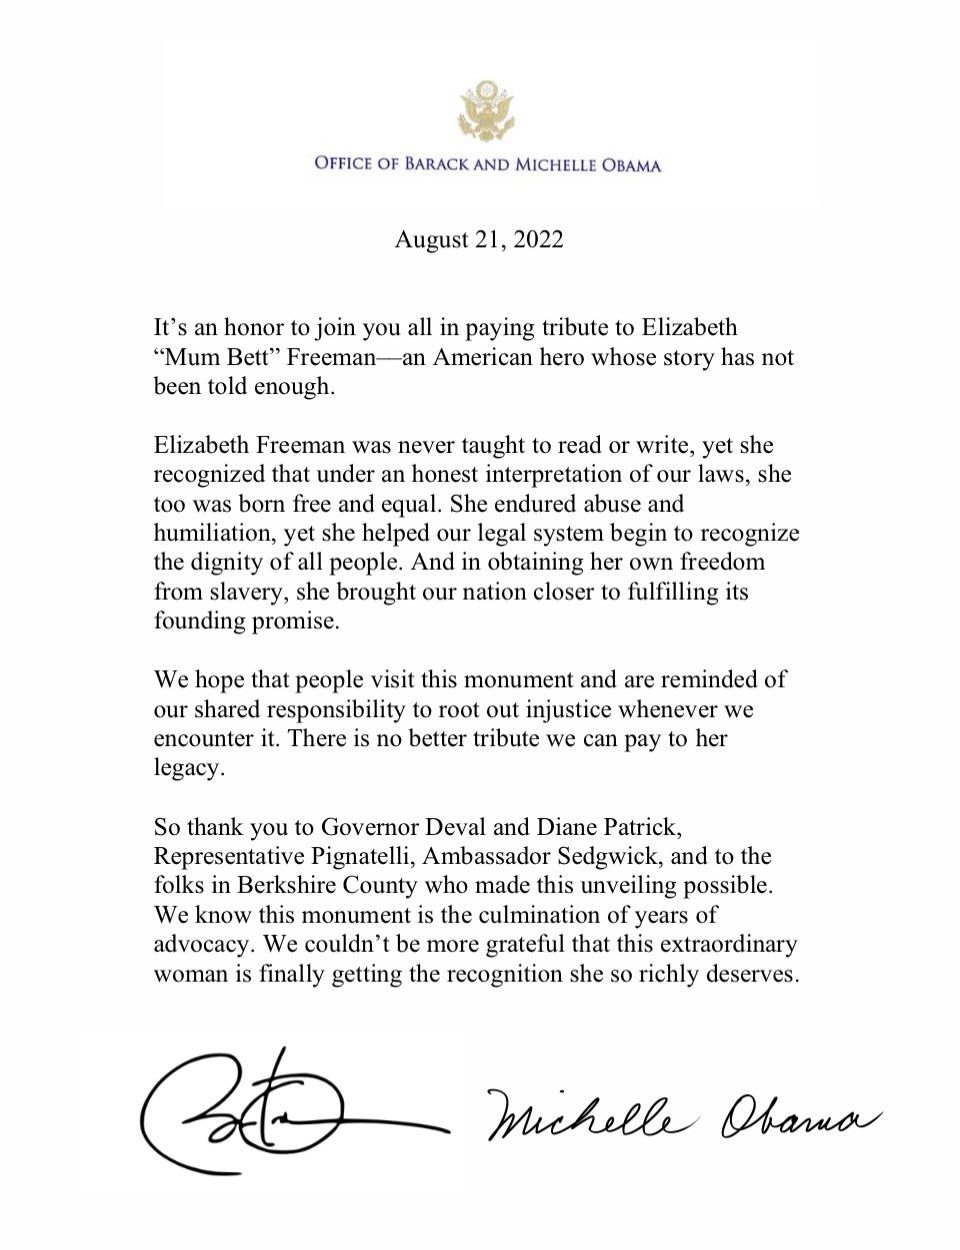 OFFICE OF BARACK AND MICHELLE OBAMA
August 21, 2022
It’s an honor to join you all in paying tribute to Elizabeth
“Mum Bett” Freeman—an American hero whose story has not
been told enough.
Elizabeth Freeman was never taught to read or write, yet she
recognized that under an honest interpretation of our laws, she
too was born free and equal. She endured abuse and
humiliation, yet she helped our legal system begin to recognize
the dignity of all people. And in obtaining her own freedom
from slavery, she brought our nation closer to fulfilling its
founding promise.
We hope that people visit this monument and are reminded of
our shared responsibility to root out injustice whenever we
encounter it. There is no better tribute we can pay to her
legacy.
So thank you to Governor Deval and Diane Patrick,
Representative Pignatelli, Ambassador Sedgwick, and to the
folks in Berkshire County who made this unveiling possible.
We know this monument is the culmination of years of
advocacy. We couldn’t be more grateful that this extraordinary
woman is finally getting the recognition she so richly deserves.
Michelle Obama